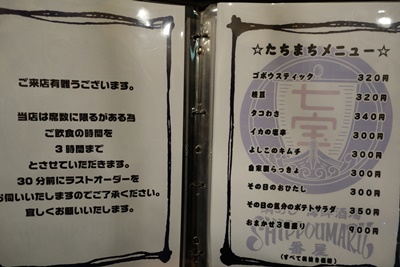 ご来店有難うございます。
当店は席数に限るがある為
ご飲食の時間を
3時間まで
とさせていただきます。
30分前にラストオーダーを
お伺いいたしますのでご了承ください。
宜しくお願いいたします。
☆たちまちメニュー☆
ゴボウスティック 320円
枝豆 320円
タコわさ 340円
イカの塩辛 300円
よしこのキムチ 300円
自家製らっきょ 300円
その日のおひたし 300円
その日の気分のポテトサラダ 350円
おまかせ3種盛り 900円
(すべて税抜き価格)
七宝
SHIPPOUMARU